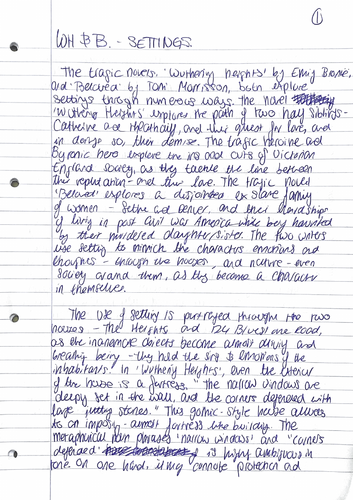 1
WH & B. - SETTINGS
The tragic novels, 'Wuthering Heights' by Emily Bronte,
and 'Beloved' by Toni Morrisson, both explore
settings through numerous ways. The novel
'Wuthering Heights' explores the path of two half siblings -
Catherine and Heathcliff, and their quest for love, and
in doing so, their demise. The tragic heroine and
Byronic hero explore the ins and outs of Victorian
England society, as they tackle the line between
their reputation - and their love. The tragic novel
'Beloved' explores a disjointed ex slave family
of women - Sethe and Denver, and their hardships
of living in post civil war America while being haunted
by their murdered daughter/sister. The two writers
use setting to mimick the characters emotions and
thoughts - through the houses, and nature - even
society around them, as they become a character
in themselves.
The use of setting is portrayed through the two
houses - The Heights and 124 Bluestone Road,
as the inanimate objects become almost a living and
breathing being - they hold the sins & emotions of the
inhabitants. In 'Wuthering Heights', even the exterior
of the house is a fortress. "The narrow windows are
deeply set in the wall, and the corners defended with
large jutting stones." This gothic-style house alludes
to an imposing - almost fortress like building. The
metaphorical phrases 'narrow windows' and "corners
defended" is highly ambiguous in
tone. On one hand, it may connote protection and